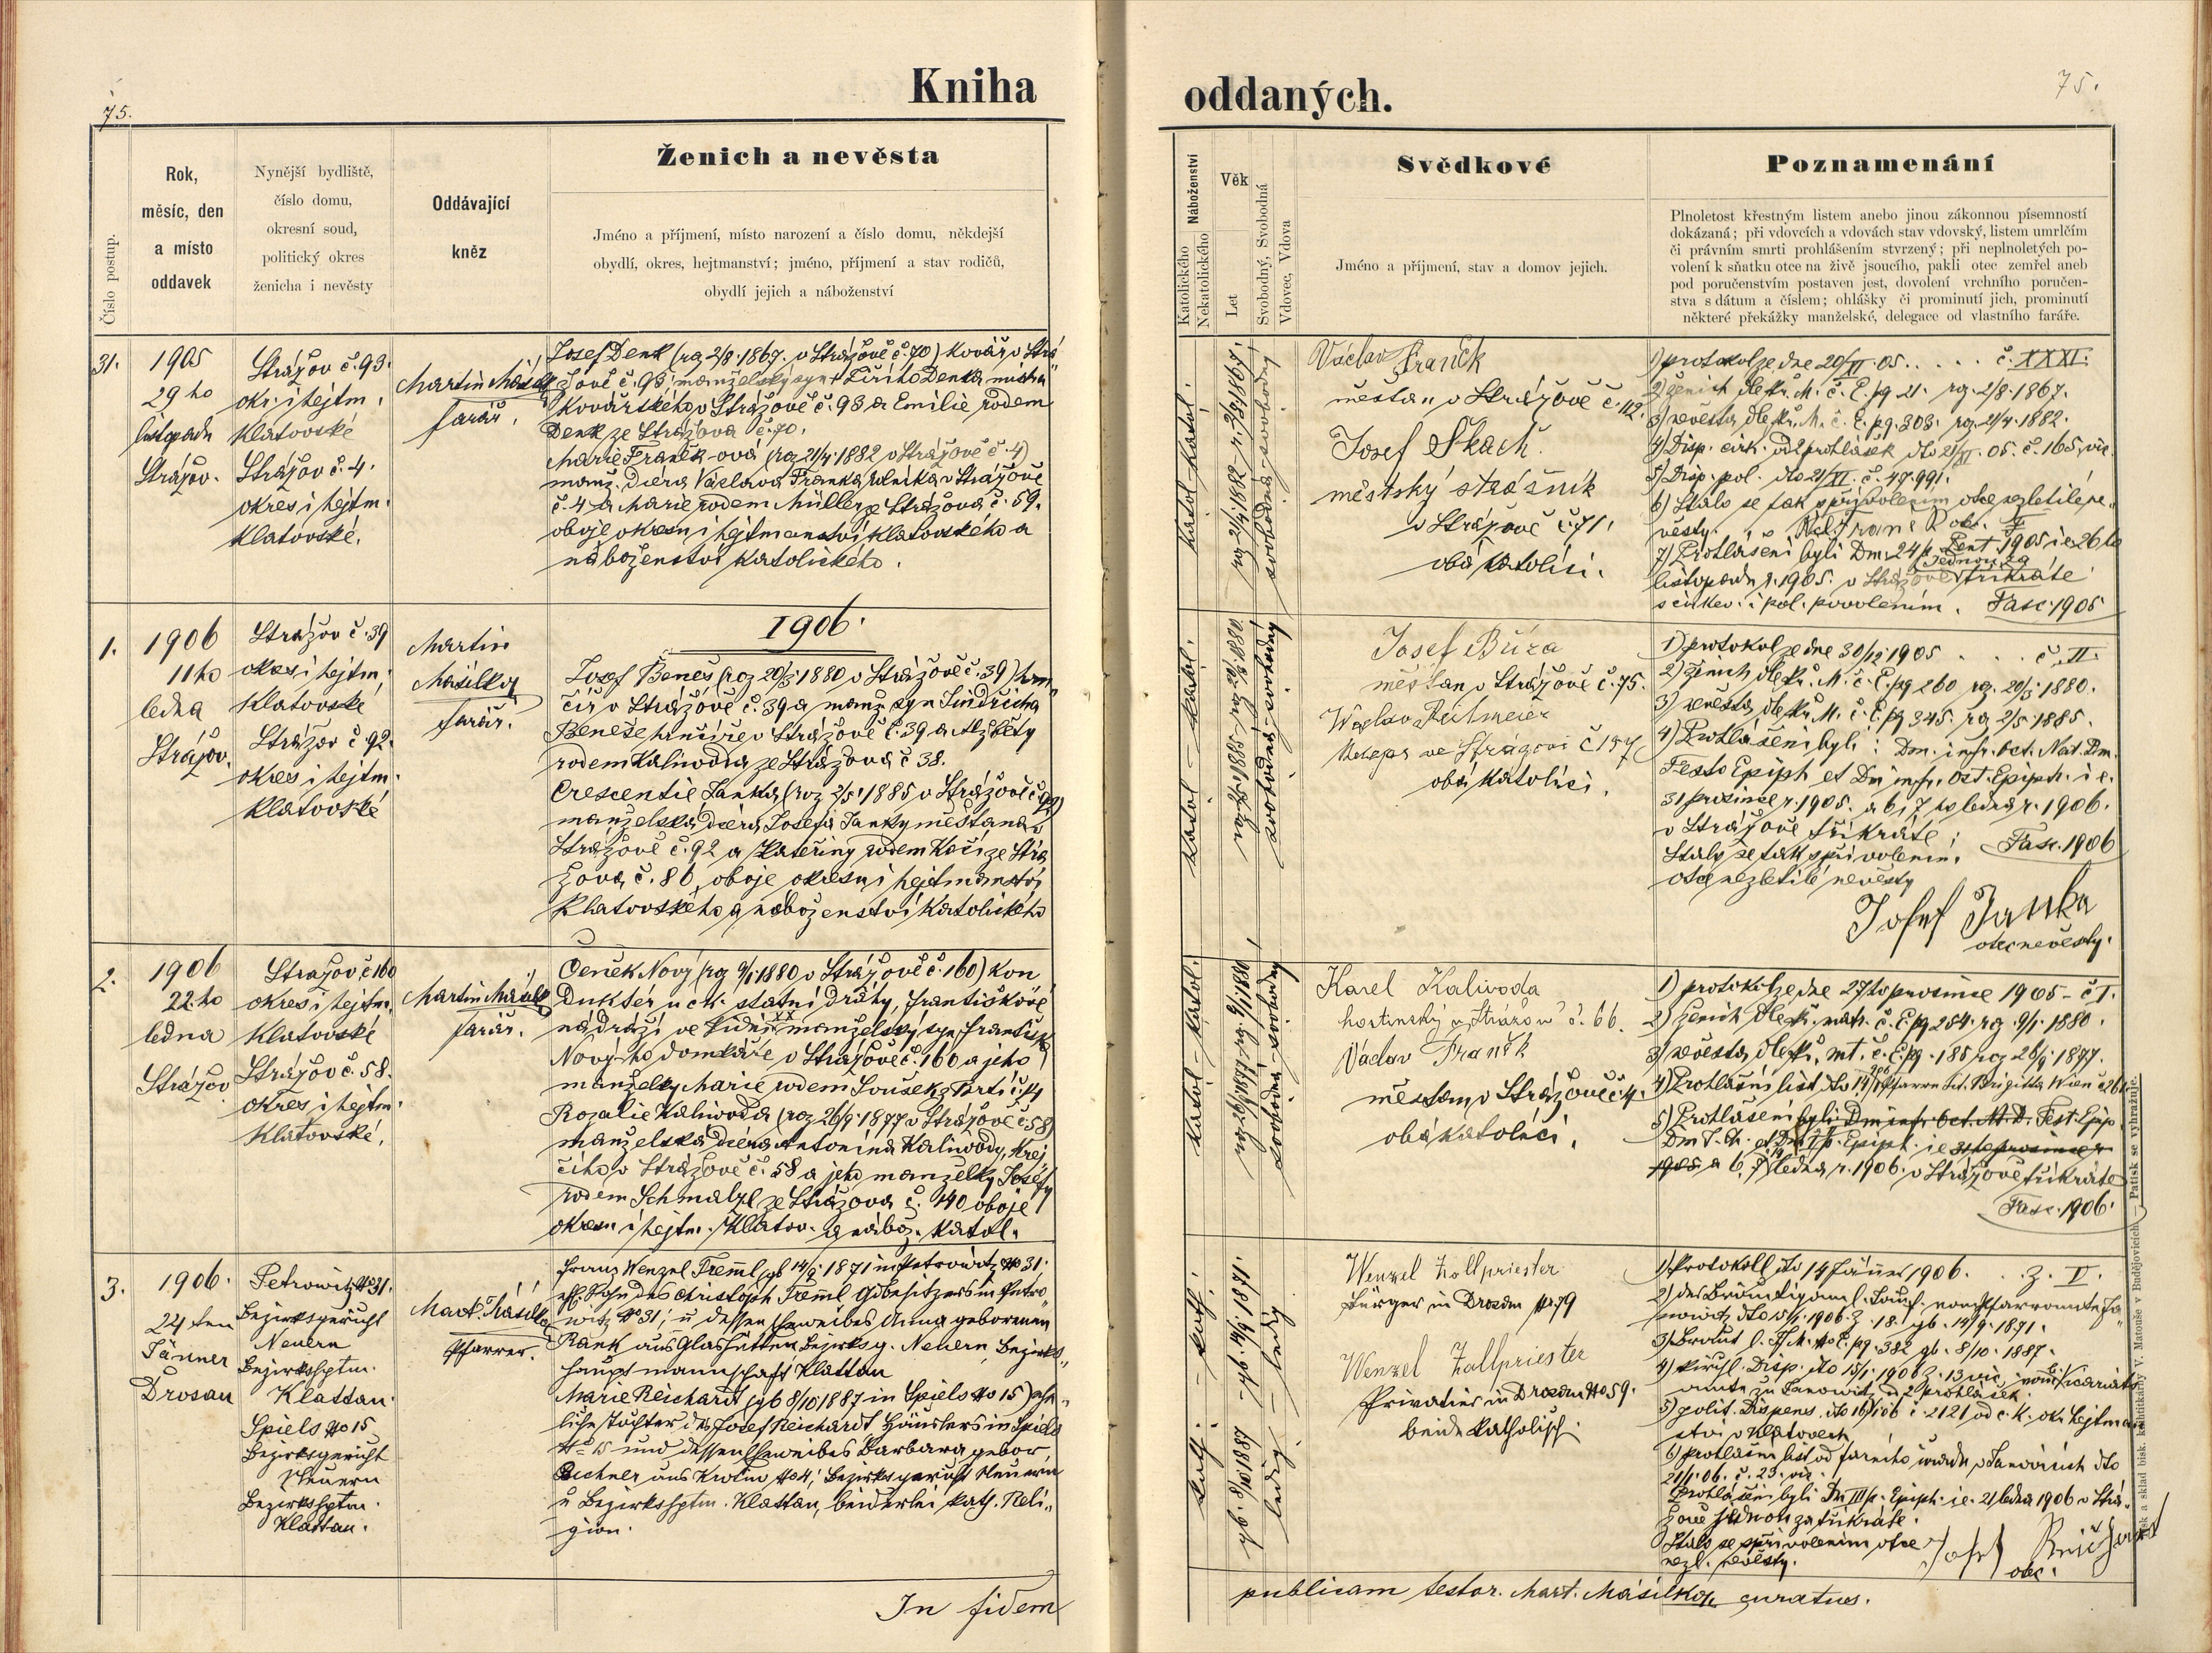 75.
Kniha
Číslo postup.
Rok,
měsíc, den
a místo
oddavek
Nynější bydliště,
číslo domu,
okresní soud,
politický okres
ženicha i nevěsty
Oddávající
kněz
Ženich a nevěsta
Jméno a příjmení, místo narození a číslo domu, někdejší
obydlí, okres, hejtmanství; jméno, příjmení a stav rodičů,
obydlí jejich a náboženství
31.
1905
29ho
listopadu
Strážov.
Strážov č. 93.
okr. i hejtm.
Klatovské
Strážov č. 4.
okres i hejtm.
Klatovské.
Martin
farář.
Josef Denk (roz 2/8. 1867. v Strážově č. 70) kovář v Strá
žově č. 93, manželský syn Jiřího Denka mistra
kovářského v Strážově č. 93 a Emilie rodem
Denk ze Strážova č. 70.
Marie Franěk-ová (roz 21/4. 1882 v Strážově č. 4)
manž. dcera Václava Fraňka rolníka v Strážově
č. 4 a Marie rodem Müller ze Strážova č. 59.
oboje okresu i hejtmanství Klatovského a
náboženství katolického.
1906.
1.
1906
11ho
ledna
Strážov.
Strážov č. 39
okres i hejtm.
Klatovské
Strážov č. 92.
okres i hejtm.
Klatovské
Martin
Másilko
farář.
Josef Beneš (roz 20/3. 1880 v Strážově č. 39) hrn
číř v Strážově č. 39 a manž. syn Jindřicha
Beneše hrnčíře v Strážově č. 39 a Alžběty
rodem Kalivoda ze Strážova č 38.
Crescentie Janka (roz 2/5. 1885 v Strážově č. 92)
manželská dcera Josefa Janky měšťana v
Strážově č. 92 a Kateřiny rodem Kočí ze Strá
žova č. 86, oboje okresu i hejtmanství
Klatovského a náboženství katolického
2.
1906
22.ho
ledna
Strážov
Strážov č. 160
okres i hejtm.
Klatovské
Strážov č. 58.
okres i hejtm.
Klatovské.
Martin
farář.
Čeněk Nový (roz 9/1. 1880 v Strážově č. 160) kon
duktér u ck. státní dráhy, Františkově
nádraží ve Vídni XX manželský syn Františka
Nového domkáře v Strážově č. 160 a jeho
manželky Marie rodem Soušek z
Rozalie Kalivoda (roz 26/9. 1877 v Strážově č. 58)
manželská dcera Antonína Kalivody, krej
čího v Strážově č. 58 a jeho manželky Josefy
rodem Schmalzl ze Strážova č. 140 oboje
okresu i hejtm. Klatov. a nábož. katol.
3.
1906.
22ten
Jänner
Drosau
Petrowitz No 31.
Bezirksgericht
Neuern
Bezirkshptm.
Klattau.
Spiels No 15
Bezirksgericht
Neuern
Bezirkshptm.
Klattau.
Mart. Másilko
Pfarrer.
Franz Wenzel Treml, gb 14/9. 1871 in Petrowitz No 31.
ehl. Sohn des Christoph Treml Gdbesitzers in Petro„
witz No 31, u dessen Eheweibes Anna geborenen
Rank aus Glashütten Bezirksg. Neuern, Bezirks„
hauptmannschaft Klattau
Marie Reichardt (gb 8/10 1887 in Spiels No 15) ehe„
liche Tochter des Josef Reichardt Häuslers in Spiels
No 15 und dessen Eheweibes Barbara gebor.
aus No 4, Bezirksgericht Neuern
u Bezirkshptm. Klattau, beiderlei kath. Reli„
gion.
In fidem
75.
oddaných.
Náboženství
Katolického
Nekatolického
Věk
Let
Svobodný, Svobodná
Vdovec, Vdova
Svědkové
Jméno a příjmení, stav a domov jejich.
Poznamenání
Plnoletost křestným listem anebo jinou zákonnou písemností
dokázaná; při vdovcích a vdovách stav vdovský, listem umrlčím
či právním smrti prohlášením stvrzený; při neplnoletých po-
volení k sňatku otce na živě jsoucího, pakli otec zemřel aneb
pod poručenstvím postaven jest, dovolení vrchního poručen-
stva s dátum a číslem; ohlášky či prominutí jich, prominutí
některé překážky manželské, delegace od vlastního faráře.
katol – katol.
roz 21/4. 1882 – r. 2/8. 1867.
svobodná – svobodný
Václav Franěk
měšťan v Strážově č. 112.
Josef Skach
městský strážník
v Strážově č. 71.
oba katolíci.
1) protokol ze dne 20/XI. 05. . . . . č. XXXI.
2) ženich dle kř. M. č. E. pg 21. roz. 2/8. 1867.
3) nevěsta dle kř. M. č. E. pg. 303. roz. 21/4. 1882.
4) Disp. círk. od 2 prohlášek dto 21/XI. 05. č. 165 vic.
5) Disp. pol. dto 21/XI. č. 47.991.
6) Stalo se tak s přivolením otce nezletilé ne„
věsty.
7) Prohlášeni byli Dm. 24 p. Pent. 1905 i.e. 26 ho
listopadu r. 1905. v Strážově jednou za třikráte
s církev. i pol. povolením. Fasc. 1905
katol – katol.
roz 2/5. 1885 – roz 20/3. 1880.
svobodná – svobodný
Josef Bůra
měšťan v Strážově č. 75.
Reitmeier
č 157
oba katolíci.
1) protokol ze dne 30/12. 1905 . . . č. II.
2) ženich dle kř. M. č. E. pg 260 roz. 20/3. 1880.
3) nevěsta dle kř. M. č. E. pg 345. roz 2/5. 1885.
4) Prohlášeni byli: Dm. infr. Oct. Nat. Dm.
Festo Epiph et Dm infr. Oct. Epiph. i e.
31 prosince r. 1905. a 6 i 7 ho ledna r. 1906.
v Strážově třikráte.
Stalo se tak s přivolením Fasc. 1906
otce nezletilé nevěsty
Josef Janka
otec nevěsty.
katol – katol.
svobodná – svobodný
Karel Kalivoda
hostinský v Strážově č. 66.
Václav Franěk
měšťan v Strážově č. 4.
oba katolíci.
1) protokol ze dne 27ho prosince 1905 – č I.
2) ženich dle kř. matr. č. E. pg 254. roz 9/1. 1880.
3) nevěsta dle kř. mt. č. E. pg. 185 roz 26/9. 1877.
4) Prohlášní list dto Pfarre Sct. Brigitta Wien
5) Prohlášeni byli Dm infr. Oct. N. D. Fest. Epip.
i.e. 31ho prosince r.
1905 a 6, 7 ledna r. 1906. v Strážově třikráte
Fasc. 1906.
kath. – kath.
gb. 8/10 1887 – gb. 14/9. 1871.
ledig – ledig
Wenzel Zollpriester
Bürger in Drosau No 79
Wenzel Zollpriester
Privatier in Drosau No 59.
beide katholisch.
1) Protokoll dto 14 Jänner 1906. . . Z. V.
2) der Bräutigam l. Taufsch. vom Pfarramte Ja„
nowitz dto 15/1. 1906 Z. 18. gb. 14/9. 1871.
3) Braut l. T. M. No E. pg. 382 gb. 8/10. 1887.
4) kirchl. Disp. dto 15/1. 1906 Z. 13 vic. vom b. Vicariats
amte zu Janowitz, 2 prohlášek.
5) polit. Dispens. dto 16/1 06 č. 2121 od c. k. okr. hejtman
ství v Klatovech
6) prohlášní list od farního úřadu v Janovicích dto
21/1. 06. č. 23.
Prohlášeni byli Dm III p. Epiph. i.e. 21 ledna 1906 v Strá„
žově jednou za třikráte.
Stalo se s přivolením otce
nezl. nevěsty. Josef Reichardt
otec.
publicam testor. Mart. Másilko, curatus.
Tisk a sklad bisk. knihtiskárny V. Matouše v Budějovicích. — Patisk se vyhražuje.